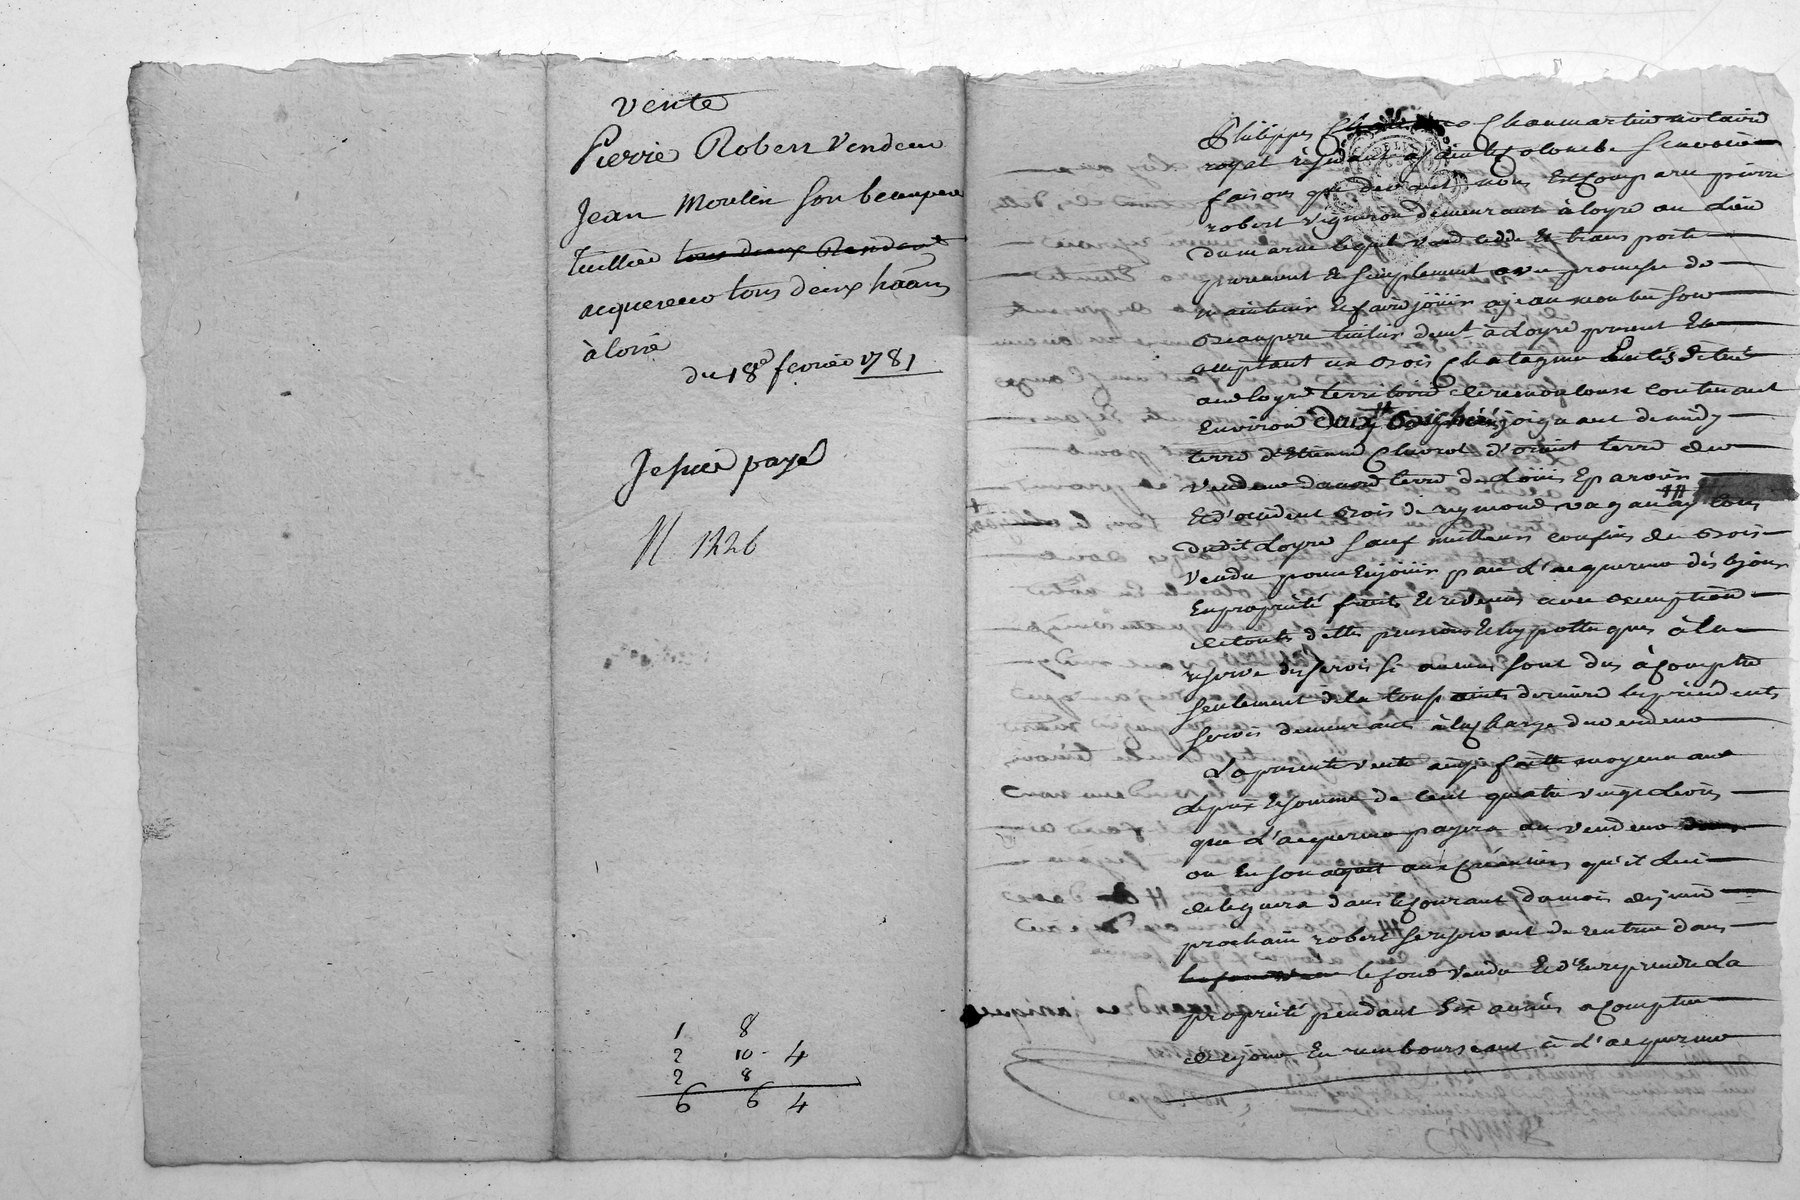 vente
Pierre Robert Vendeur
Jean Moulin son beaupere
tuillier tous deux Residant
acquereur tous deux ha͠ans
à loire
du 18e fevrier 1781
Je suis payé
N 1226
1 8
2 10 - 4
2 8
6 6 4
Philippes Chaumartin notaire
royal résidant à sainte Colombe Scavoir
faisons que devant nous Est comparu pierre
robert vigneron demeurant à loyre au Lieu
du marin lequel vend cedde Et transporte
purement Et simplement avec promesse de
maintenir Et faire jöuir a jean moulin son
Beaupere tuilier demt à Loyre present Et
acceptant un Bois Chatagnier situé
aud loyre territoire de remoulouse contenant
Environ deux joignant de midy
terre d'Etienne d'orient terre du
Vendeur de nord terre de Loüis Eparvier
Et d'occident Bois de reymond vaganay tous
dudit Loyre sauf meilleurs confins du Bois
Vendu pour En jöuir par L'acquereur dès cejour
En propriété fruits Et revenus avec Exemption
de toutes dettes pensions Et hypotheques à la
reserve des servis si aucuns sont dus à compter
seulement de la toussaints derniere les précédents
servis demeurants à la charge du vendeur
La presente vente ainsi faitte moyenant
Le prix Et somme de Cent quatre vingt Livres
que L'acquereur payera au vendeur
ou En son acquit aux Créanciers qu'il Lui
deleguera dans le courant du mois de juin
prochain robert se reservant de rentrer dans
le fond vendu Et d'En reprendre La
propriété pendant Six années a Compter
de cejour En remboursant à L'acquereur